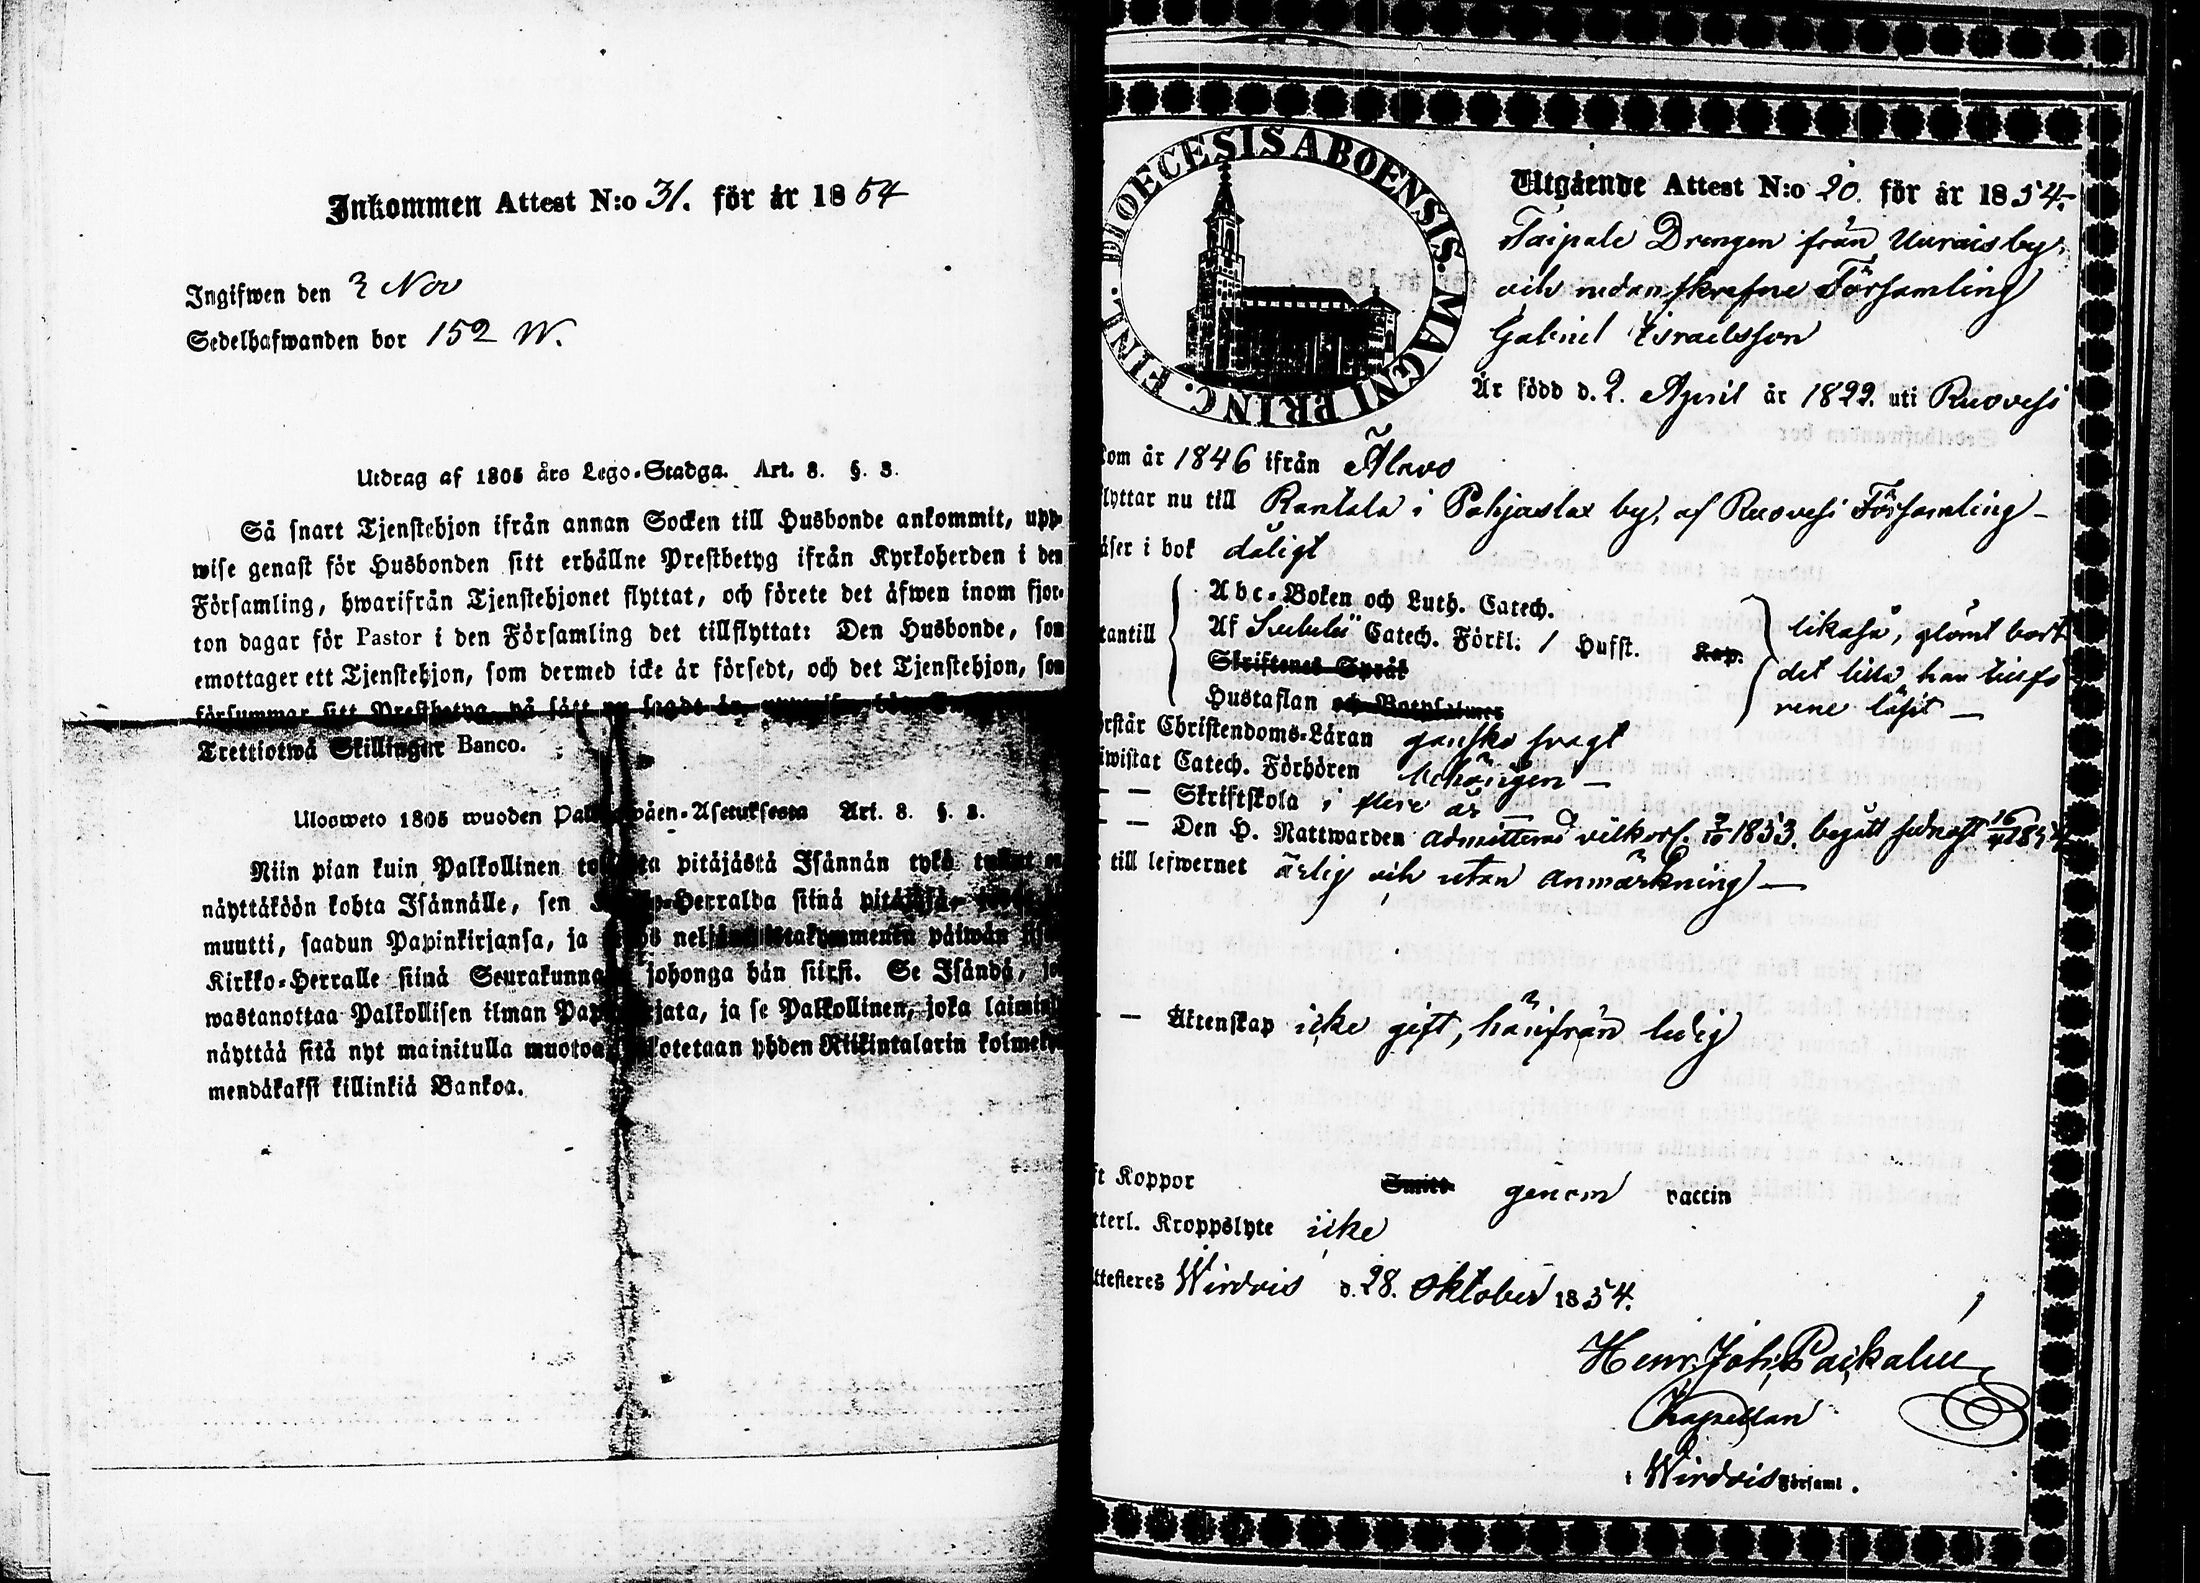 Inkommen Attest N:o 31. för år 1854
Ingifwen den 2 Nov
Sedelhafwanden bor 152 W.
Utdrag af 1805 års Lego-Stadga. Art. 8. §. 3.
Så snart Tjenstehjon ifrån annan Socken till Husbonde ankommit, upp-
wise genast för Husbonden sitt erhållne Prestbetyg ifrån Kyrkoherden i den
Församling, hwarifrån Tjenstehjonet flyttat, och förete det åfwen inom fjor-
ton dagar för Pastor i den Församling det tillflyttat: Den Husbonde, som
emottager ett Tjenstehjon, som dermed icke är försedt, och det Tjenstehjon, som
försummar sitt Prestbetyg, på sätt nu sagdt är,
Trettiotwå Skillingar Banco.
Ulosweto 1805 wuoden Art. 8. §. 3.
Niin pian kuin Palkollinen pitäjästä Isännän tykö
näyttäköön kohta Isännälle, sen Herralda siinä
muutti, saadun Papinkirjansa, ja päiwän
Kirkko-Herralle siinä Seurakunna johonga hän siirsi. Se Isändä, jo
wastanottaa Palkollisen ilman Pap jata, ja se Palkollinen, joka laimin
näyttää sitä nyt mainitulla muotoa kotetaan yhden Riikintalarin kolmeky
mendäkaksi killinkiä Bankoa.
DIOECESIS ABOENSIS. MAGNI PRINC. FINL.
Utgående Attest N:o 20. för år 1854.
Taipale Drengen från Uurais by,
och nedanskrefne Församling
Gabriel Israelsson
Är född d. 2. April år 1822. uti Ruovesi
kom år 1846 ifrån Alavo
flyttar nu till Rantala i Pohjaslax by, af Ruovesi Församling
äser i bok dåligt
tantill
Abc-Boken och Luth. Catech.
Af Svebelii Catech. Förkl. 1 Hufst. Kap.
Skriftenes Språk
Hustaflan och Botpsalmer
likaså, glömt bort
det lilla han tillfö
rene läsit
örstår Christendoms-Läran ganska svagt
iwistat Catech. Förhören
— — Skriftskola i flere år
— — Den H. Nattwarden admitterad vilkorl. 1853. begått sednast 16 1854
till lefwernet ärlig och utan anmärkning
— — Äktenskap icke gift, härifrån ledig
ft Koppor Smitt. genom vaccin
tterl. Kroppslyte icke
ttesteres Wirdois d. 28. Oktober 1854.
Henr. Joh. Packalen
Kapellan
i Wirdois Församl.